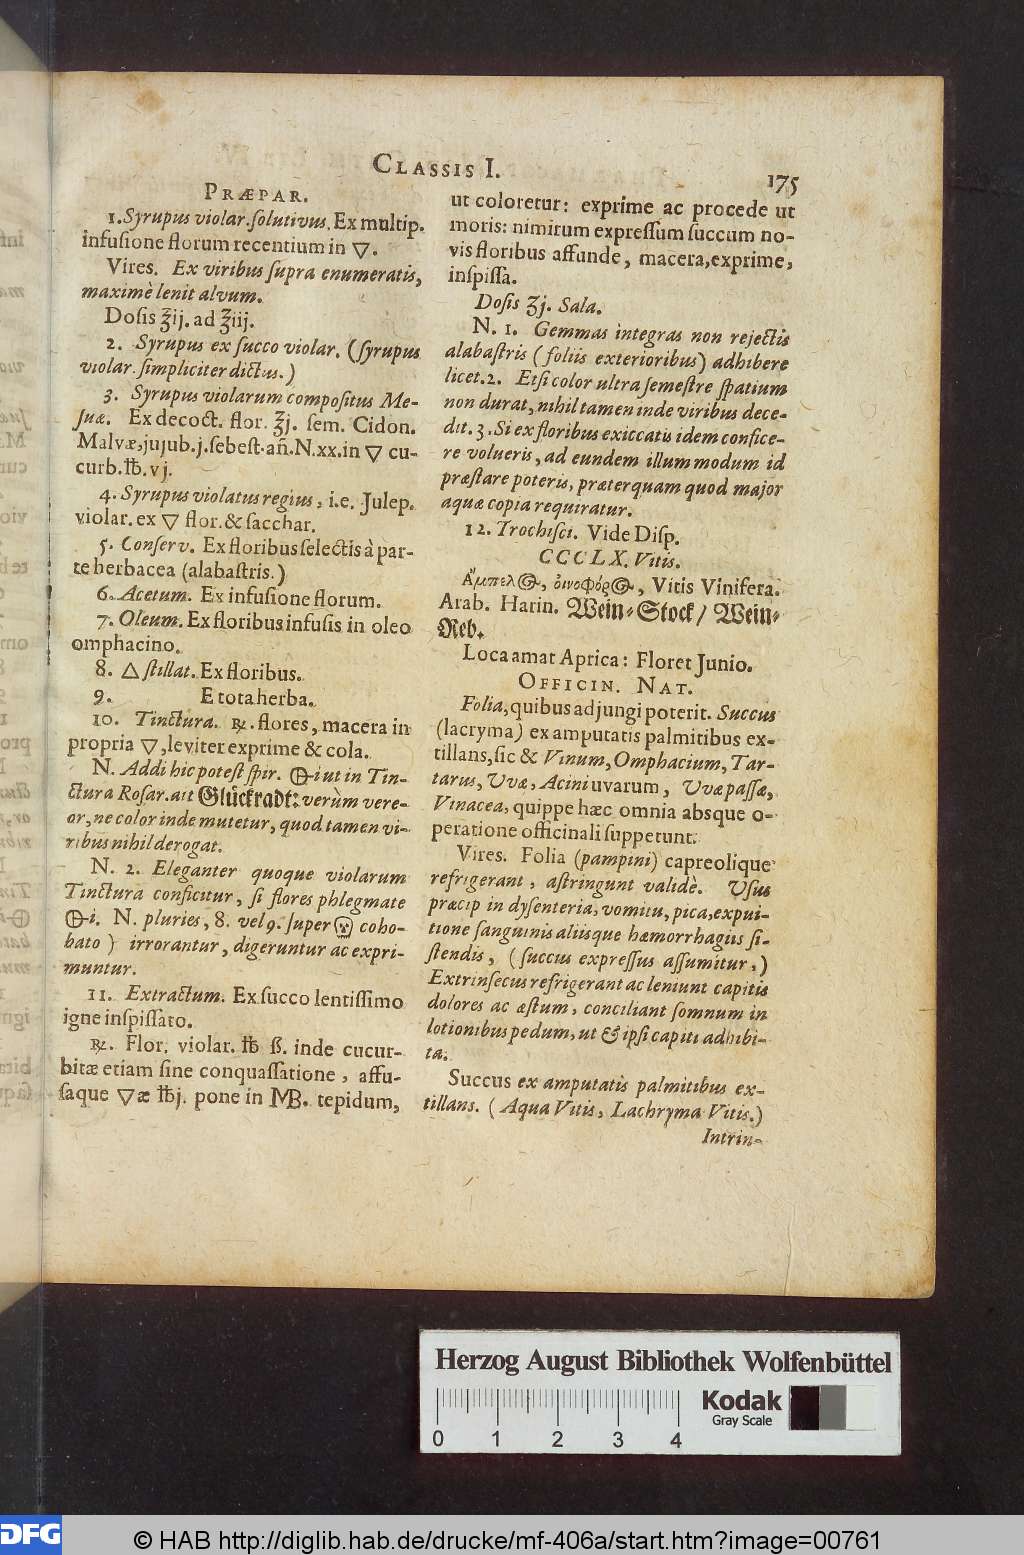 CLASSIS I.
175
PRÆPAR.
1. Syrupus violar. solutivus. Ex multip.
infusione florum recentium in 🜄.
Vires. Ex viribus supra enumeratis,
maximè lenit alvum.
Dosis ℥ij. ad ℥iij.
2. Syrupus ex succo violar. (syrupus
violar. simpliciter dictus.)
3. Syrupus violarum compositus Me-
suæ. Ex decoct. flor. ℥j. sem. Cidon.
Malvæ, jujub. j. sebest. añ. N. xx. in 🜄 cu-
curb. ℔. vj.
4. Syrupus violatus regius, i.e. Julep.
violar. ex 🜄 flor. & sacchar.
5. Conserv. Ex floribus selectis à par-
te herbacea (alabastris.)
6. Acetum. Ex infusione florum.
7. Oleum. Ex floribus infusis in oleo
omphacino.
8. 🜂 stillat. Ex floribus.
9. E tota herba.
10. Tinctura. ℞. flores, macera in
propria 🜄, leviter exprime & cola.
N. Addi hic potest spir. 🜖i ut in Tin-
ctura Rosar. ait Glückradt: verùm vere-
or, ne color inde mutetur, quod tamen vi-
ribus nihil derogat.
N. 2. Eleganter quoque violarum
Tinctura conficitur, si flores phlegmate
🜖i. N. pluries, 8. vel 9. super coho-
bato) irrorantur, digeruntur ac expri-
muntur.
11. Extractum. Ex succo lentissimo
igne inspissato.
℞. Flor. violar. ℔ ß. inde cucur-
bitæ etiam sine conquassatione, affu-
saque 🜄æ ℔j. pone in MB. tepidum,
ut coloretur: exprime ac procede ut
moris: nimirum expressum succum no-
vis floribus affunde, macera, exprime,
inspissa.
Dosis ℥j. Sala.
N. 1. Gemmas integras non rejectis
alabastris (foliis exterioribus) adhibere
licet. 2. Etsi color ultra semestre spatium
non durat, nihil tamen inde viribus dece-
dit. 3. Si ex floribus exiccatis idem confice-
re volueris, ad eundem illum modum id
præstare poteris, præterquam quod major
aquæ copia requiratur.
12. Trochisci. Vide Disp.
CCCLX. Vitis.
Ἄμπελος, οἰνοφόρος, Vitis Vinifera.
Arab. Harin. Wein-Stock/ Wein-
Reb.
Loca amat Aprica: Floret Junio.
OFFICIN. NAT.
Folia, quibus adjungi poterit. Succus
(lacryma) ex amputatis palmitibus ex-
tillans, sic & Vinum, Omphacium, Tar-
tarus, Uvæ, Acini uvarum, Uvæ passæ,
Vinacea, quippe hæc omnia absque o-
peratione officinali suppetunt.
Vires. Folia (pampini) capreolique
refrigerant, astringunt validè. Usus
præcip in dysenteria, vomitu, pica, expui-
tione sanguinis aliisque hæmorrhagiis si-
stendis, (succus expressus assumitur,)
Extrinsecus refrigerant ac leniunt capitis
dolores ac æstum, conciliant somnum in
lotionibus pedum, ut & ipsi capiti adhibi-
ta.
Succus ex amputatis palmitibus ex-
tillans. (Aqua Vitis, Lachryma Vitis.)
Intrin-
Herzog August Bibliothek Wolfenbüttel
Kodak
Gray Scale
0 1 2 3 4
DFG
© HAB http://diglib.hab.de/drucke/mf-406a/start.htm?image=00761